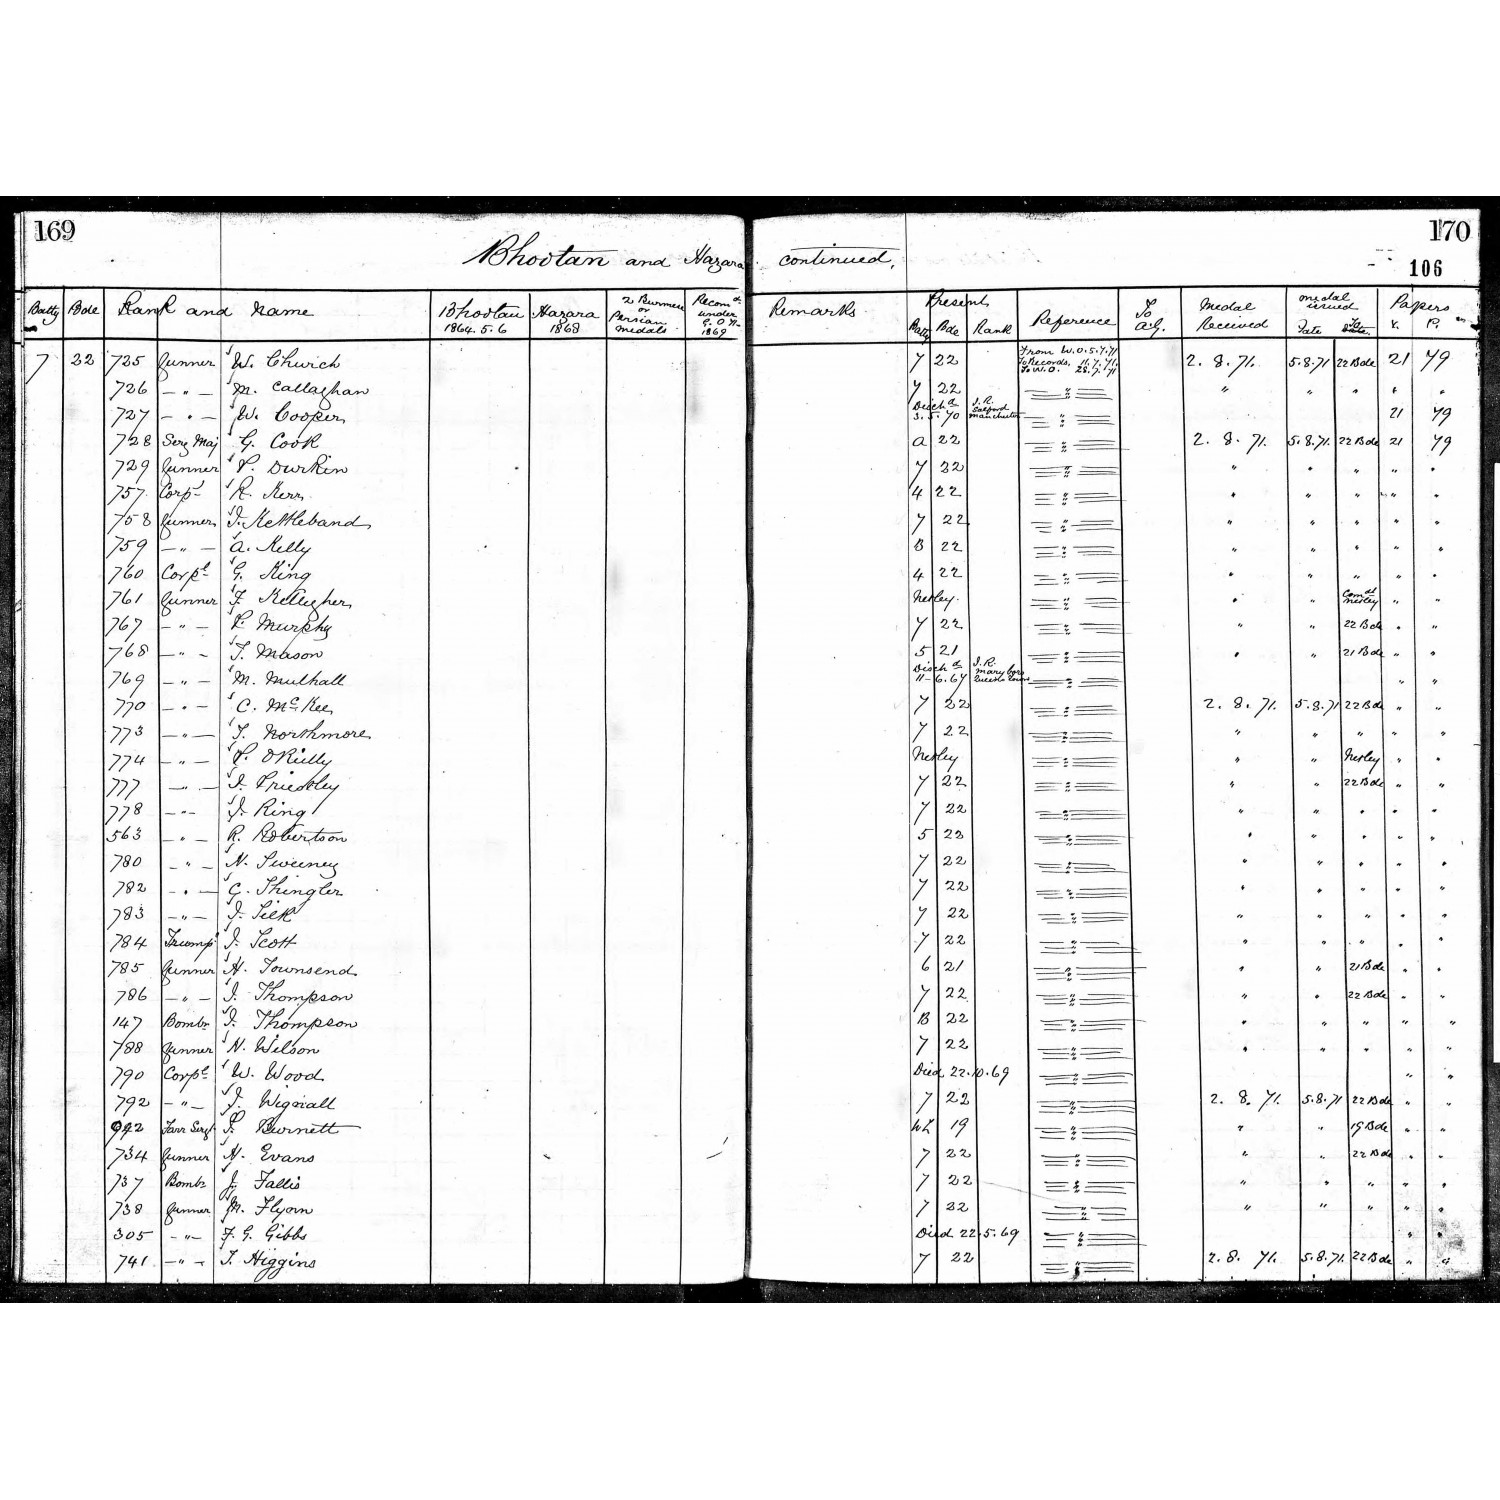 169 170
Bhootan and Hazara continued.
106
Batty Bde Rank and Name Bhootan 1864.5.6 Hazara 1868 2 Burmese or Persian medals Recomd under G.O. 1869 Remarks Present Batty Bde Rank Reference To A.G. Medal Received medal issued Date To Papers V. P.
7 22 725 Gunner W. Church 7 22 From W.O. 5.7.71 To Records. 11.7.71. To W.O. 28.7.71 2.8.71. 5.8.71 22 Bde 21 79
726 — " — M. Callaghan 7 22 " " " " "
727 — " — W. Cooper Dischd 3.5.70 I.R. Salford Manchester " 21 79
728 Serg Maj G. Cook A 22 " 2.8.71. 5.8.71. 22 Bde 21 79
729 Gunner P. Durkin 7 22 " " " " " "
757 Corpl R. Kerr 4 22 " " " " " "
758 Gunner J. Kettleband 7 22 " " " " " "
759 — " — A. Kelly B 22 " " " " " "
760 Corpl G. King 4 22 " " " " " "
761 Gunner F. Kellagher Netley. " " " Comdt Netley " "
767 — " — P. Murphy 7 22 " " " 22 Bde " "
768 — " — T. Mason 5 21 " " " 21 Bde " "
769 — " — M. Mulhall Dischd 11-6.67 I.R. Maryboro Queens County " " "
770 — " — C. McKee 7 22 " 2.8.71. 5.8.71 22 Bde " "
773 — " — T. Northmore 7 22 " " " " " "
774 — " — P. O'Rielly Netley " " " Netley " "
777 — " — J. Priestley 7 22 " " " 22 Bde " "
778 — " — J. Ring 7 22 " " " " " "
563 — " — R. Robertson 5 23 " " " " " "
780 — " — N. Sweeney 7 22 " " " " " "
782 — " — G. Shingler 7 22 " " " " " "
783 — " — J. Silk 7 22 " " " " " "
784 Trump J. Scott 7 22 " " " " " "
785 Gunner H. Townsend 6 21 " " " 21 Bde " "
786 — " — J. Thompson 7 22 " " " 22 Bde " "
147 Bombr J. Thompson B 22 " " " " " "
788 Gunner N. Wilson 7 22 " " " " " "
790 Corpl W. Wood Died 22.10.69 " " "
792 — " — J. Wignall 7 22 " 2.8.71. 5.8.71 22 Bde " "
942 Farr Sergt P. Burnett 19 " " " 19 Bde " "
734 Gunner H. Evans 7 22 " " " 22 Bde " "
737 Bombr J. Fallis 7 22 " " " " " "
738 Gunner M. Flynn 7 22 " " " " " "
305 — " — F. G. Gibbs Died 22.5.69 " " "
741 — " — T. Higgins 7 22 " 2.8.71. 5.8.71. 22 Bde " "